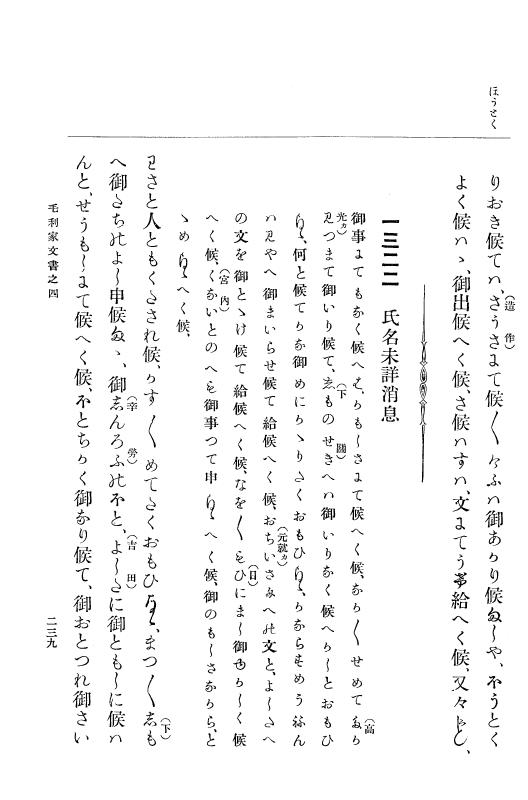 ほうとく
りおき候てハ、さうさにて候〱、けふハ御あかり候ましや、ほうとく
(造作)
よく候ハヽ、御出候へく候、さ候ハすハ、文にてう事給へく候、又々かしく、
一三二二　氏名未詳消息
御事にてもなく候へとも、かもしさまて候へく候、なか〱せめてたか
(高
光ヵ)
見つまて御いり候て、しものせきへハ御いりなく候へかしとおもひ
(下關)
まいらせ候、何と候てかな御めにかゝりたくおもひまいらせ候、かならすめうねん
ハ見やへ御まいらせ候て給候へく候、おちいさなへの文と、よしたへ
(元就ヵ)
の文を御とゝけ候て給候へく候、なを〱をひにまし御ゆかしく候
(日)
へく候、くないとのへも御事つて申まいらせ候へく候、御のもしさなから、と
(宮内)
ゝめまいらせ候へく候、
わさと人ともくたされ候、かす〱めてたくおもひまいらせ候、まつ〱しも
(下)
へ御たちのよし申候まゝ、御しんろふのほと、よしたに御ともしに候ハ
(辛勞)
(吉田)
んと、せうもしにて候へく候、ほとちかく御なり候て、御おとつれ御さい
毛利家文書之四
二三九